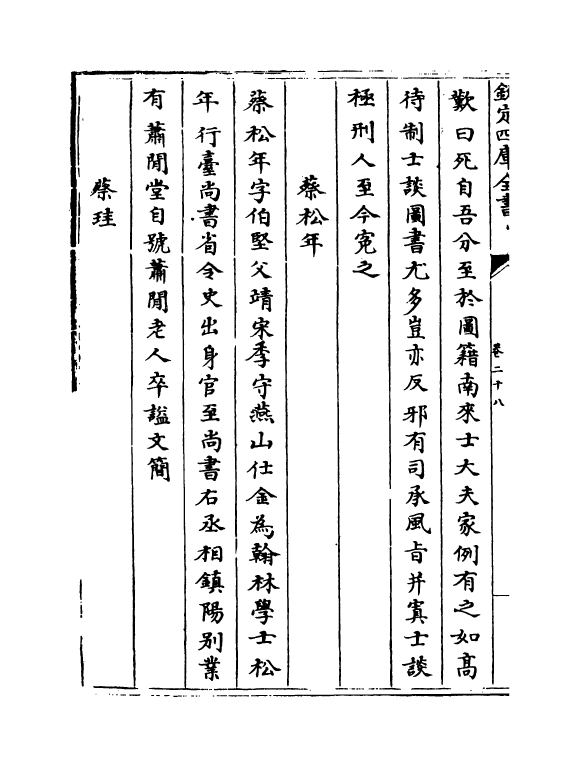 欽定四庫全書
卷二十八
歎曰死自吾分至於圖籍南來士大夫家例有之如髙
待制士談圖書尤多豈亦反邪有司承風㫖并寘士談
極刑人至今寃之
蔡松年
蔡松年字伯堅父靖宋季守燕山仕金為翰林學士松
年行臺尚書省令史出身官至尚書右丞相鎮陽别業
有蕭閒堂自號蕭閒老人卒諡文簡
蔡珪